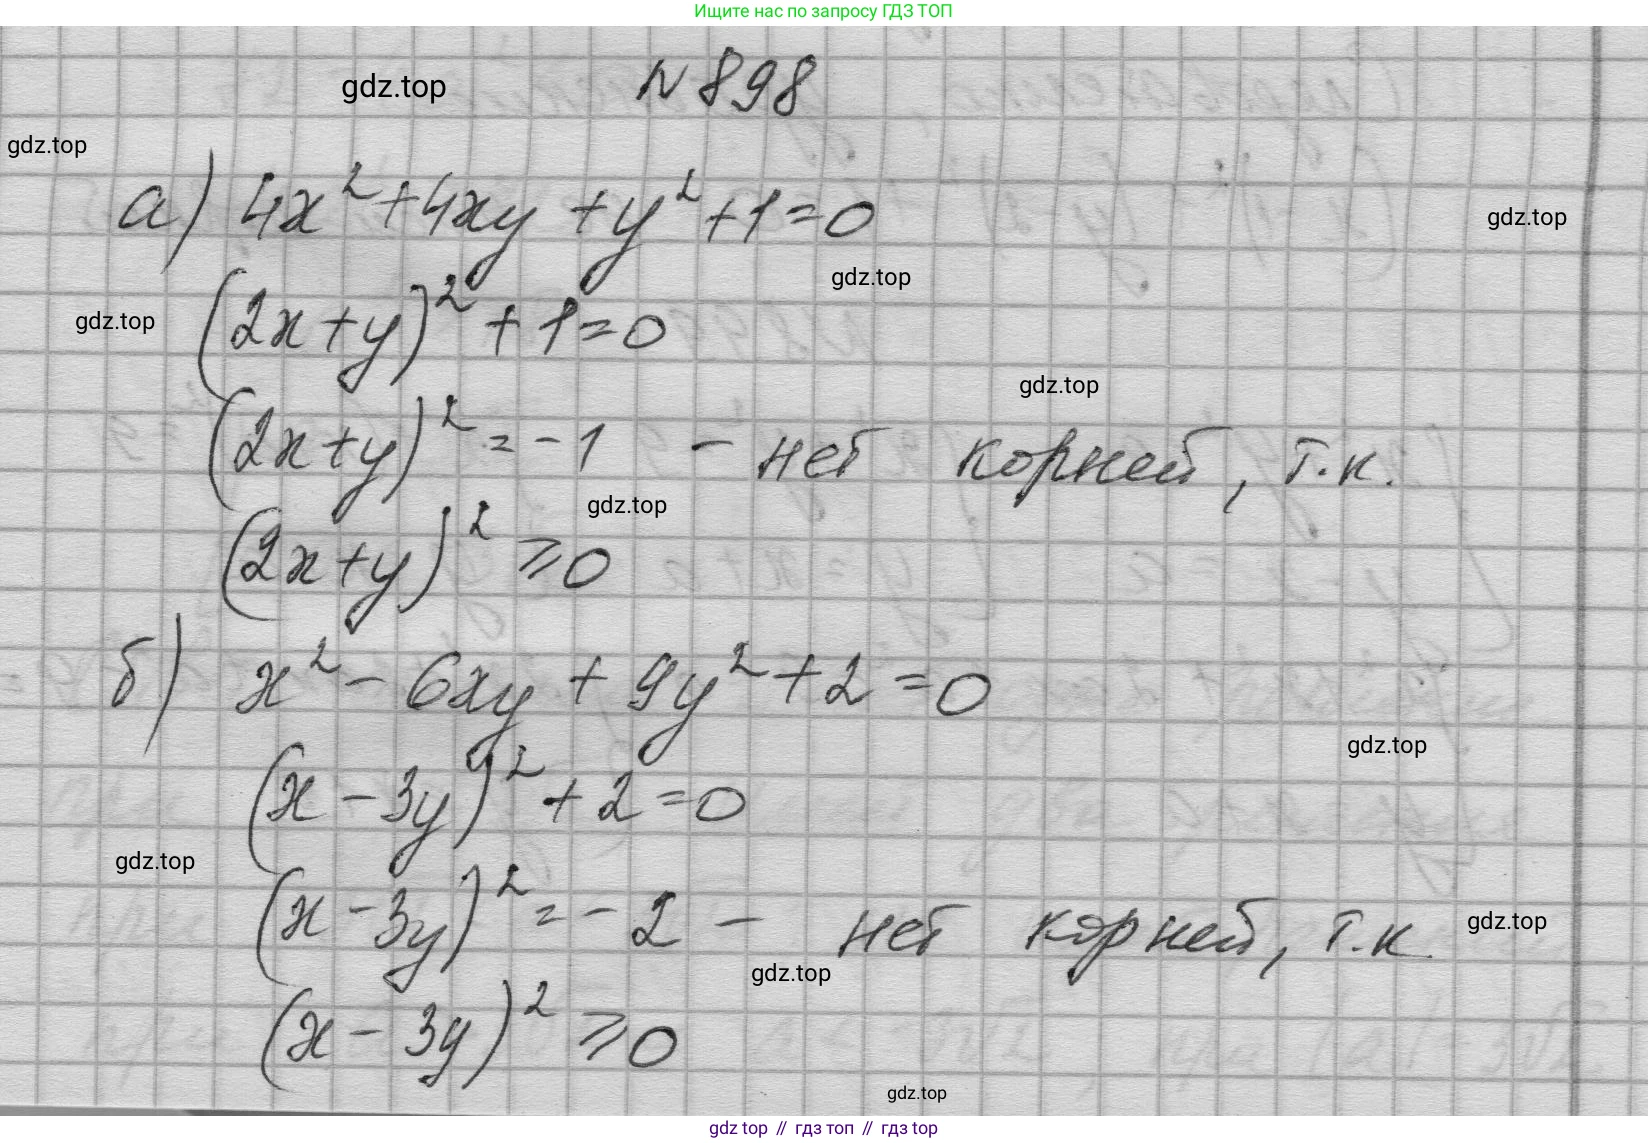 Ищите нас по запросу ГДЗ ТОП
gdz.top
№898
gdz.top
а) 4x²+4xy+y²+1=0
gdz.top
gdz.top
(2x+y)²+1=0
gdz.top
gdz.top
(2x+y)²=-1 - нет корней, т.к.
gdz.top
(2x+y)²⩾0
б) x²-6xy+9y²+2=0
gdz.top
(x-3y)²+2=0
gdz.top
(x-3y)²=-2 - нет корней, т.к.
gdz.top
gdz.top
(x-3y)²⩾0
gdz.top
gdz top // гдз топ // гдз top